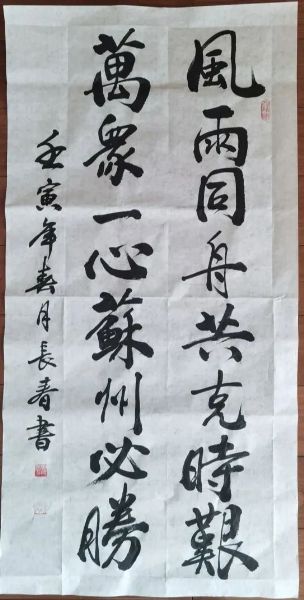 風雨同舟共克時艱
萬眾一心蘇州必勝
壬寅年春月長春書